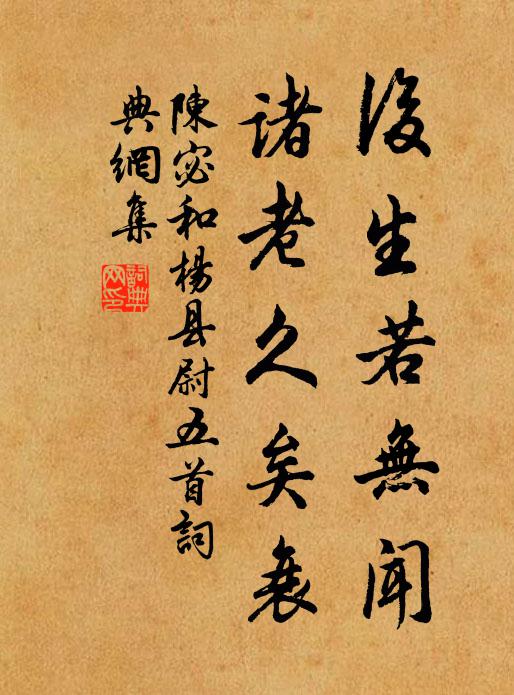 後生若無聞
諸老久矣衰
陳宓和楊县尉五首詞
典網集
詞典
网印